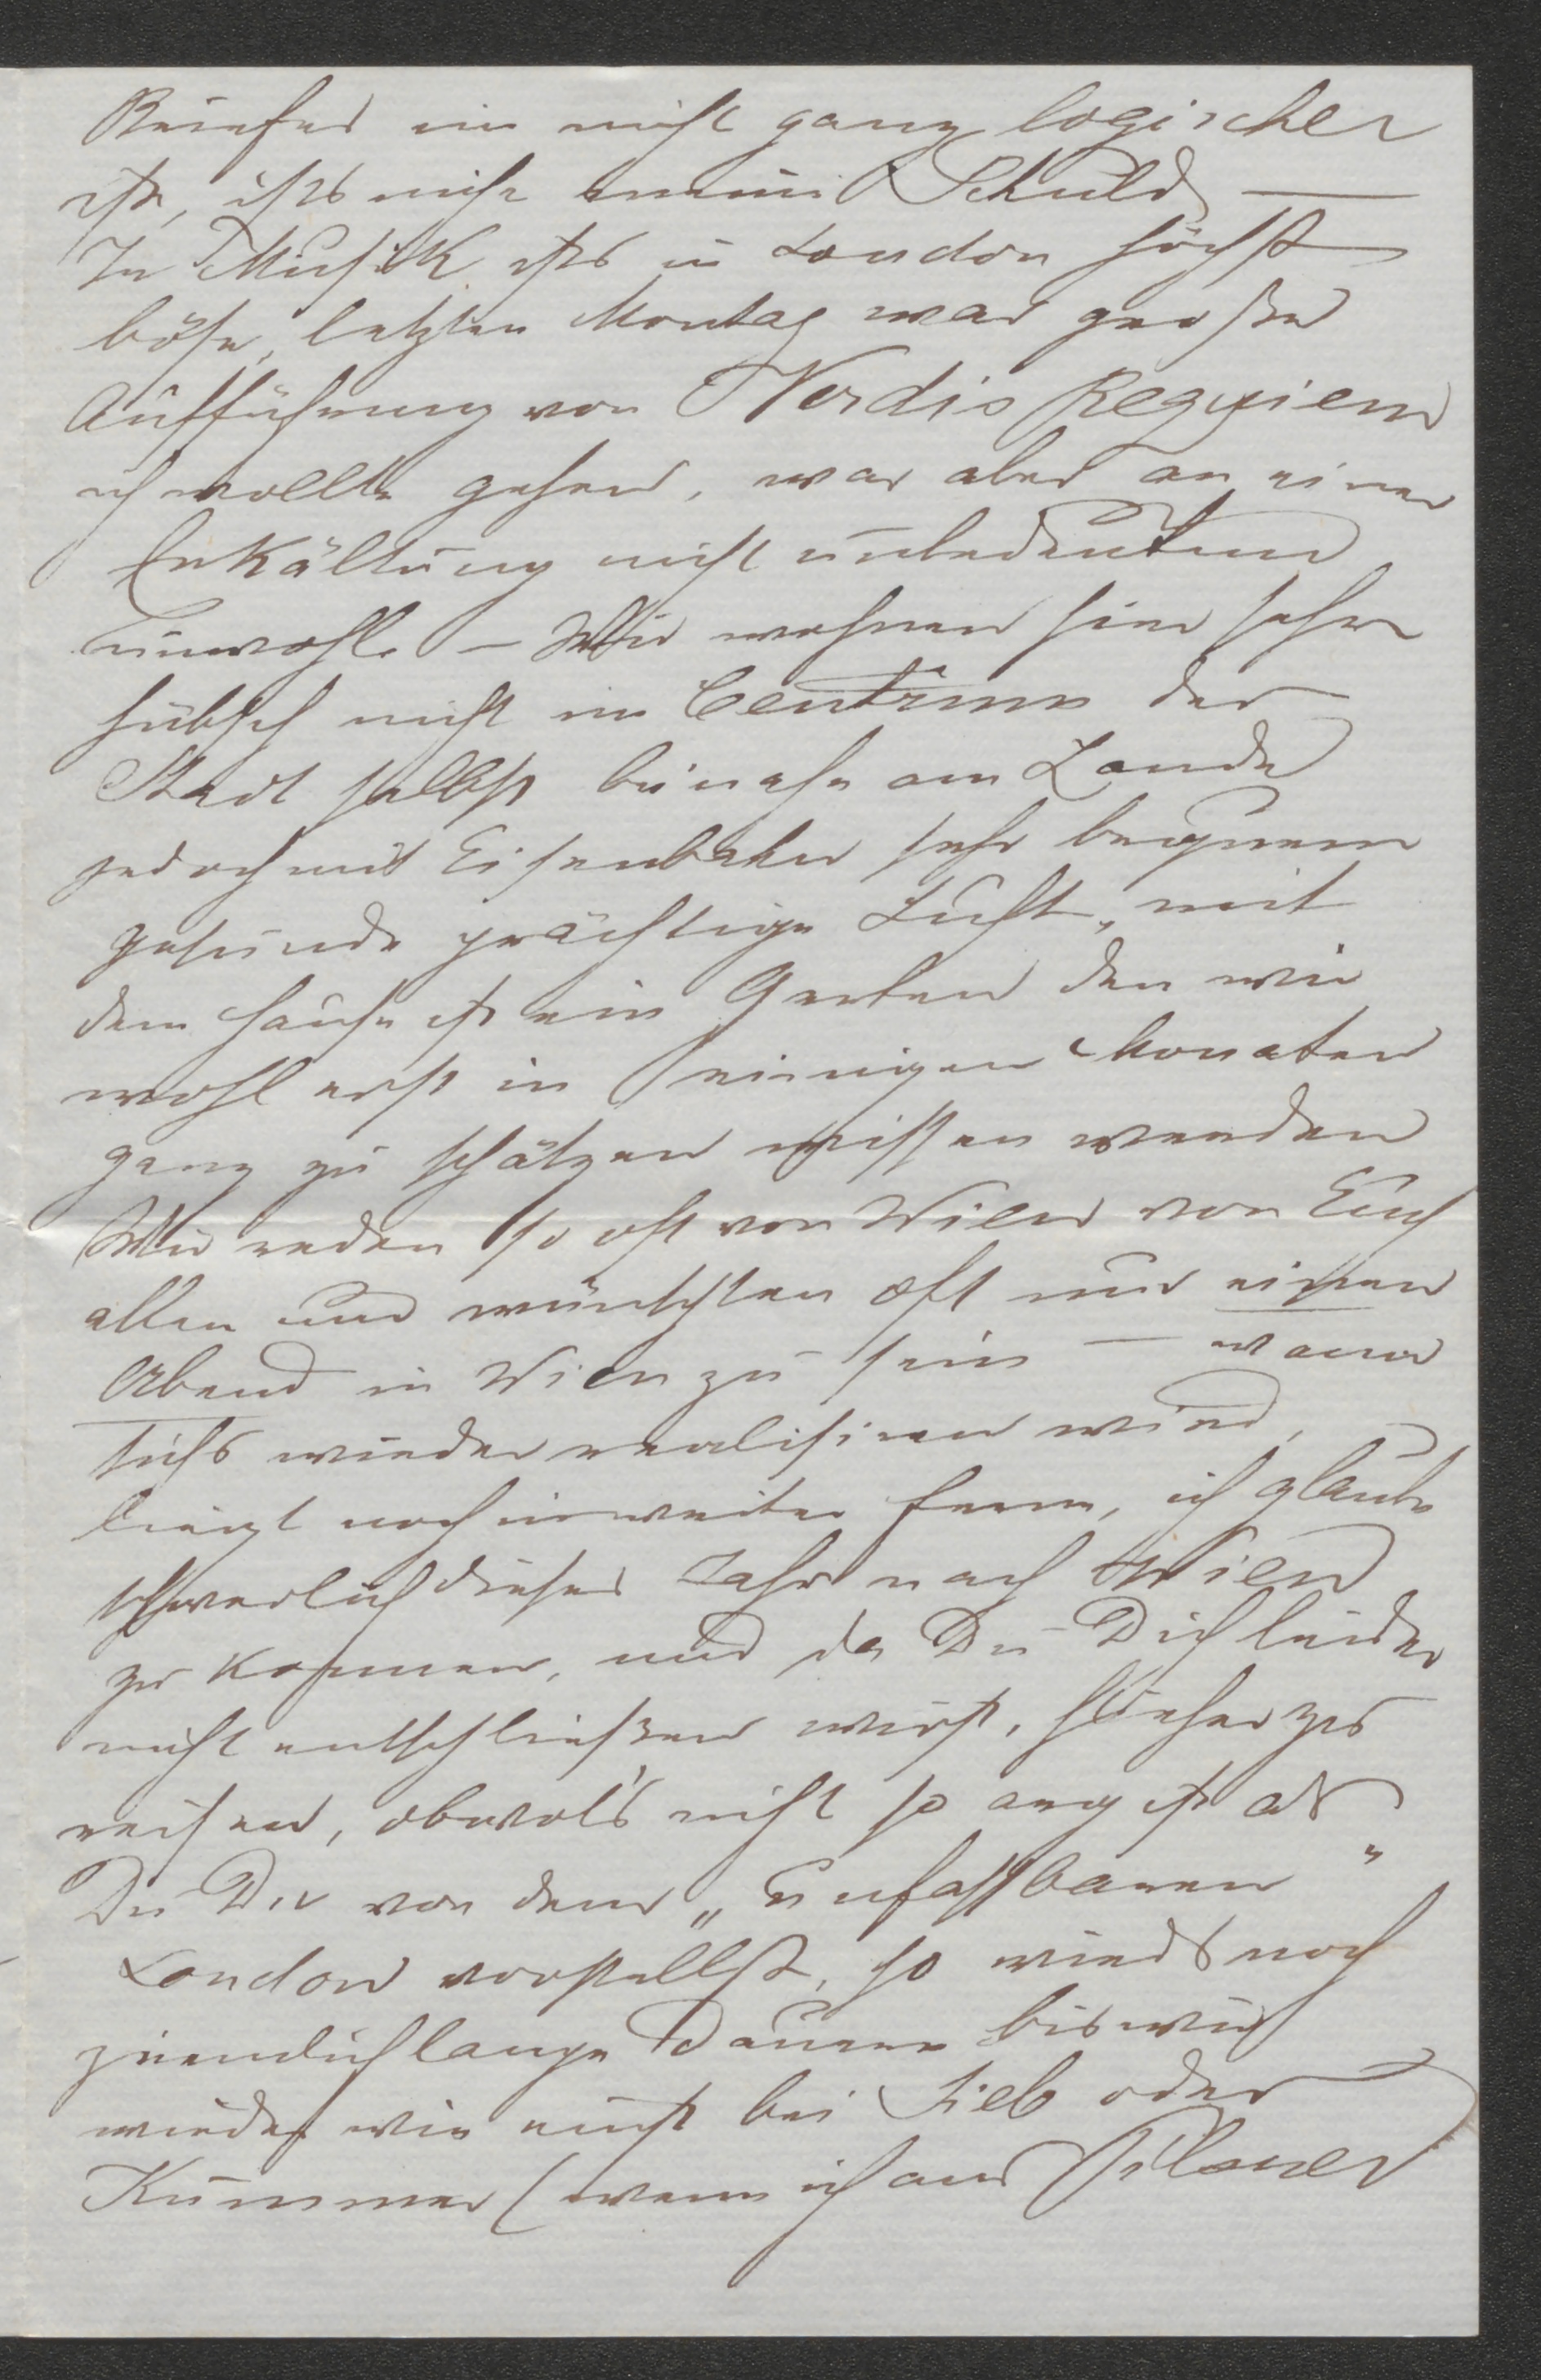 Briefes ein nicht ganz logischer
ist, ists nicht meine Schuld —
In Musik ists in London höchst
böse, letzten Montag war große
Aufführung von Verdis Requiem
ich wollte gehen, war aber an einer
Erkältung nicht unbedeutend
unwohl. — Wir wohnen hier sehr
hübsch nicht im Centrum der
Stadt selbst beinahe am Lande
jedoch mit Eisenbahn sehr bequem
gesunde prächtige Luft, mit
dem Hause ist ein Garten den wir
wohl erst in einigen Monaten
ganz zu schätzen wissen werden
Wir reden so oft von Wien von Euch
allen und wünschten oft nur einen
Abend in Wien zu sein — wann
sichs wieder realisiren wird,
liegt noch in weiter Ferne, ich glaube
schwerlich dieses Jahr nach Wien
zu kommen, und da Du Dich leider
nicht entschließen wirst, hieher zu
reisen, obwol's nicht so arg ist als
Du Dir von dem „Unfassbaren"
London vorstellst, so wirds noch
ziemlich lange dauern bis wir
wieder wie einst bei Lieb oder
Kummer (wenn ich am Pilsner